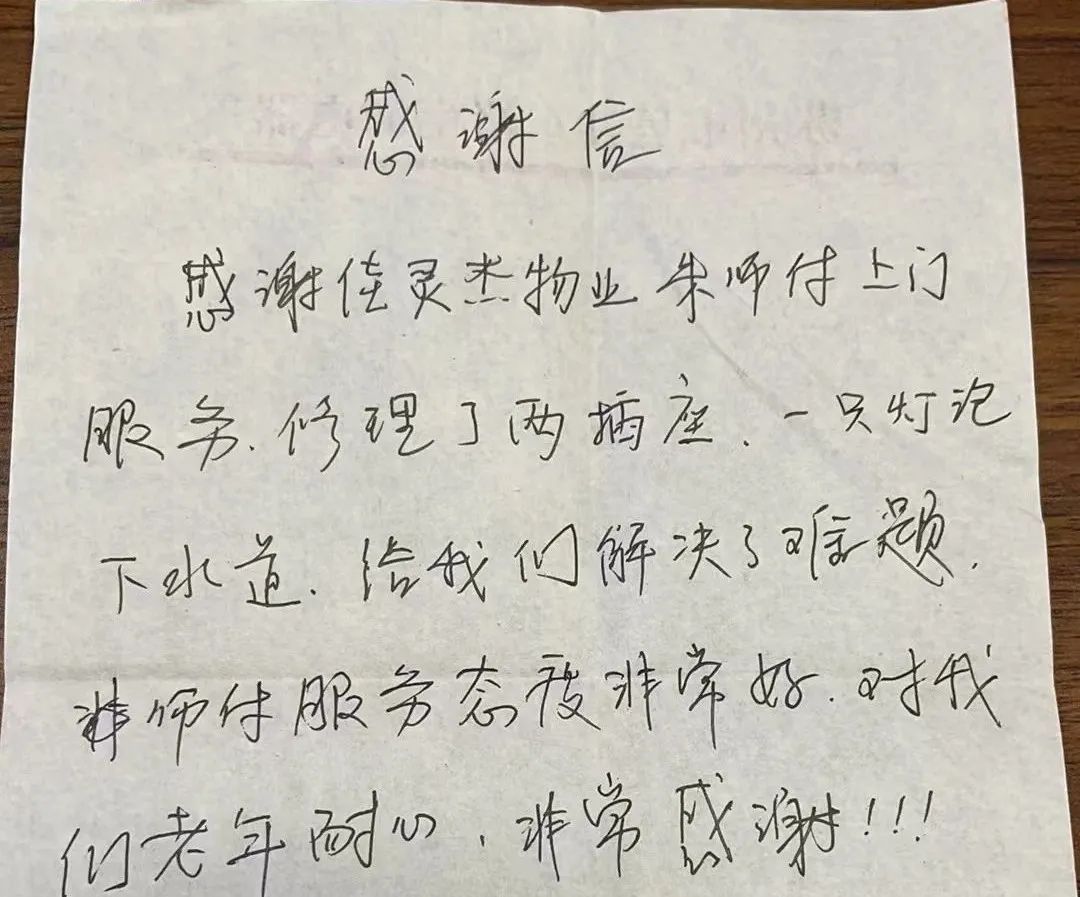 感谢信
感谢佳灵杰物业朱师付上门
服务、修理了两插座、一只灯泡
下水道、给我们解决了难题、
师付服务态度非常好、对我
们老年耐心、非常感谢!!!